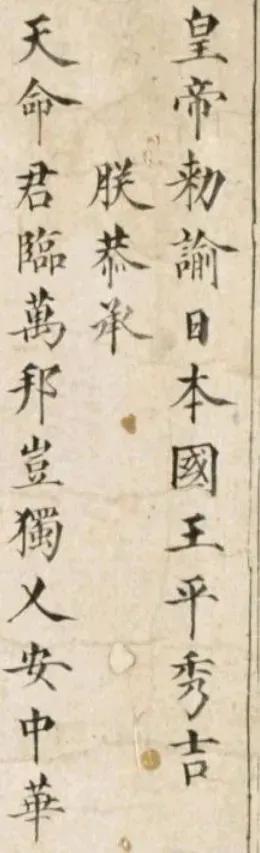 皇帝勅諭日本國王平秀吉
朕恭承
天命君臨萬邦豈獨乂安中華